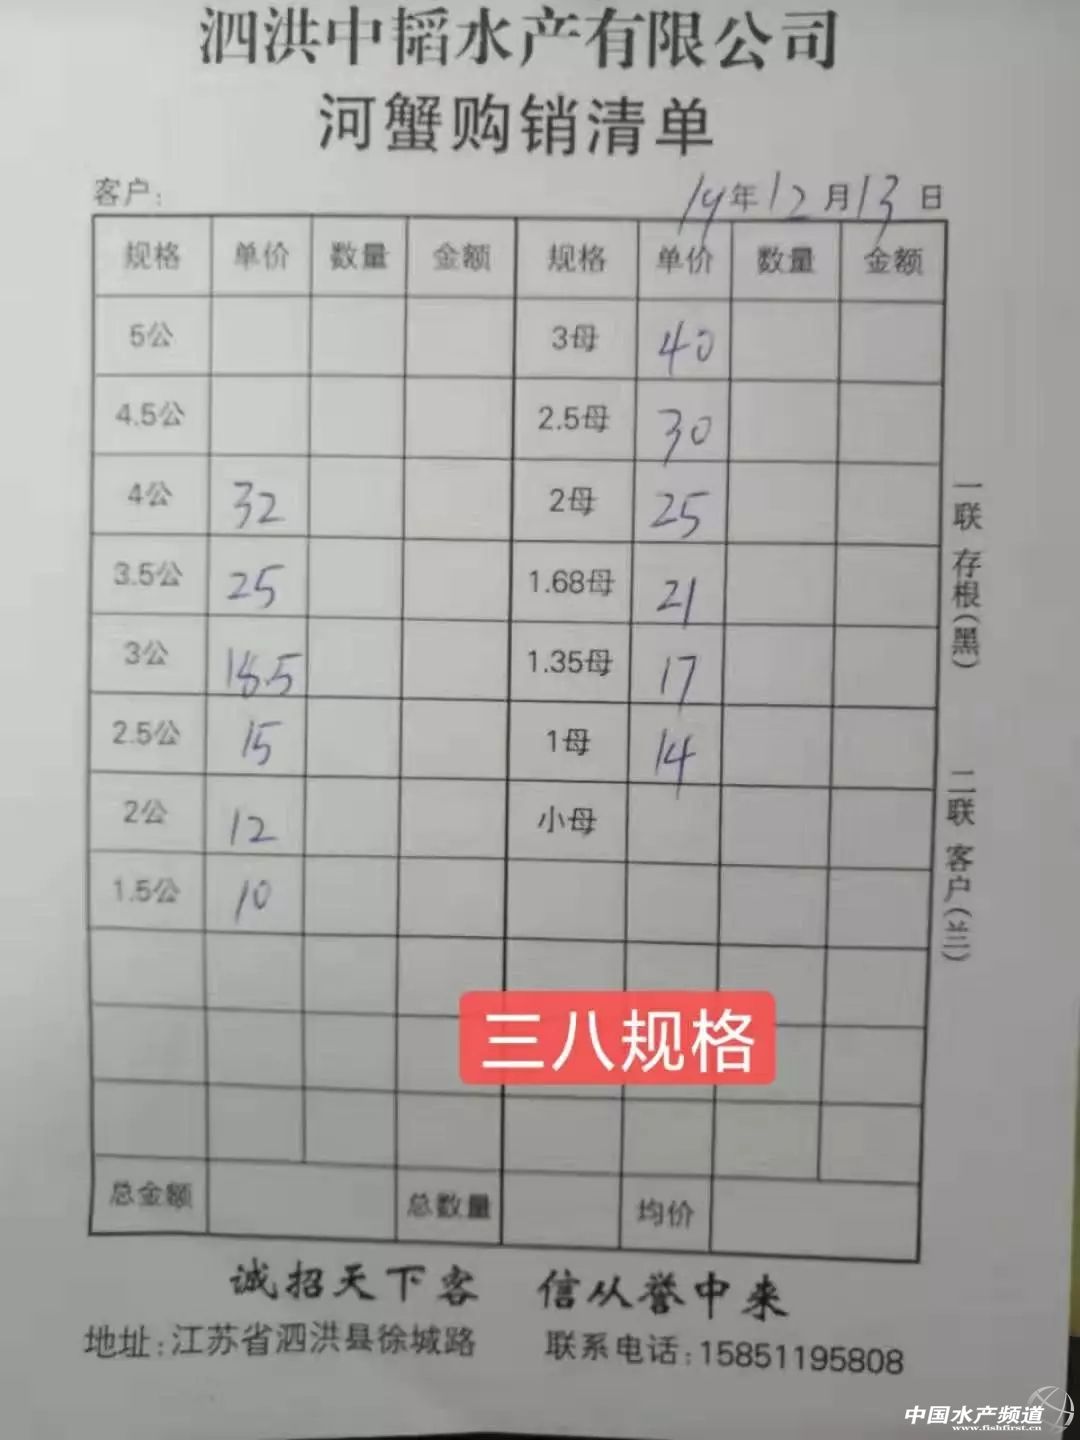 泗洪中韬水产有限公司
河蟹购销清单
客户: 19年12月13日
规格 单价 数量 金额 规格 单价 数量 金额
5公 3母 40
4.5公 2.5母 30
4公 32 2母 25
3.5公 25 1.68母 21
3公 18.5 1.35母 17
2.5公 15 1母 14
2公 12 小母
1.5公 10
三八规格
总金额 总数量 均价
一联 存根(黑)
二联 客户(兰)
诚招天下客 信从誉中来
地址:江苏省泗洪县徐城路 联系电话:15851195808
中国水产频道
www.fishfirst.cn